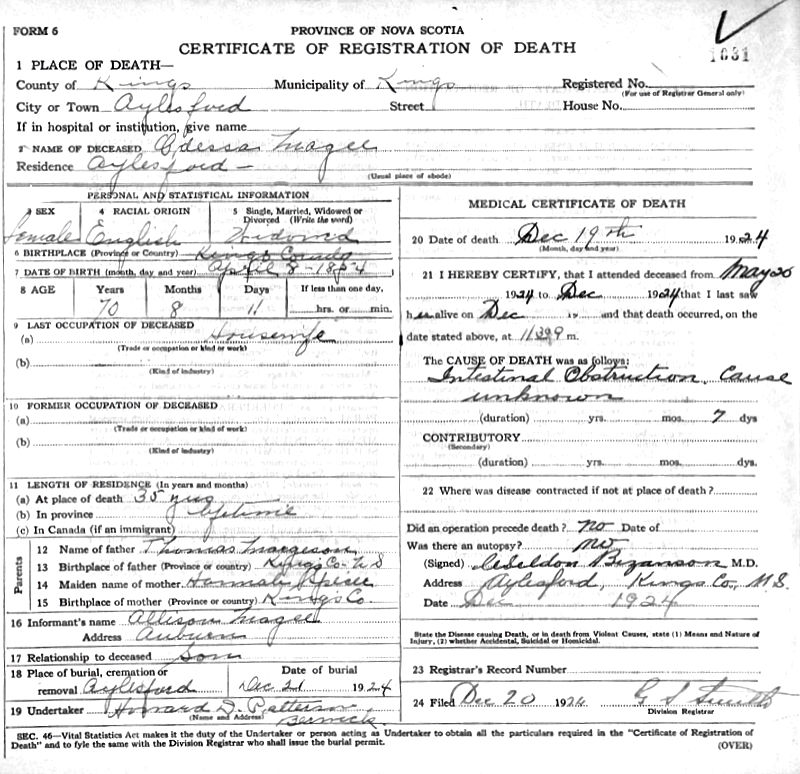 FORM 6
PROVINCE OF NOVA SCOTIA
CERTIFICATE OF REGISTRATION OF DEATH
1631
1 PLACE OF DEATH—
County of Kings Municipality of Kings Registered No.
(For use of Registrar General only)
City or Town Aylesford Street House No.
If in hospital or institution, give name
2 NAME OF DECEASED Odessa Magee
Residence Aylesford —
(Usual place of abode)
PERSONAL AND STATISTICAL INFORMATION
3 SEX 4 RACIAL ORIGIN 5 Single, Married, Widowed or Divorced (Write the word)
Female English Widowed
6 BIRTHPLACE (Province or Country) Kings County
7 DATE OF BIRTH (month, day and year) April 8 - 1854
8 AGE Years Months Days If less than one day,
70 8 11 hrs. or min.
9 LAST OCCUPATION OF DECEASED
(a) Housewife
(Trade or occupation or kind or work)
(b)
(Kind of industry)
10 FORMER OCCUPATION OF DECEASED
(a)
(Trade or occupation or kind of work)
(b)
(Kind of industry)
11 LENGTH OF RESIDENCE (In years and months)
(a) At place of death 35 yrs
(b) In province lifetime
(c) In Canada (if an immigrant)
Parents
12 Name of father Thomas Margeson
13 Birthplace of father (Province or country) Kings Co - N S
14 Maiden name of mother Hannah
15 Birthplace of mother (Province or country) Kings Co
16 Informant's name Allison Magee
Address Auburn
17 Relationship to deceased Son
18 Place of burial, cremation or removal Aylesford
Date of burial
Dec 21 1924
19 Undertaker Howard D. Patterson
(Name and Address) Berwick
MEDICAL CERTIFICATE OF DEATH
20 Date of death Dec 19th 1924
(Month, day and year)
21 I HEREBY CERTIFY, that I attended deceased from May 20
1924 to Dec 1924 that I last saw
her alive on Dec 19 and that death occurred, on
date stated above, at m.
The CAUSE OF DEATH was as follows:
Intestinal Obstruction, Cause
unknown
(duration) yrs. mos. 7 dys
CONTRIBUTORY
(Secondary)
(duration) yrs. mos. dys.
22 Where was disease contracted if not at place of death?
Did an operation precede death? no Date of
Was there an autopsy? no
(Signed) Bezanson M.D.
Address Aylesford, Kings Co, N.S.
Date Dec 1924
State the Disease causing Death, or in death from Violent Causes, state (1) Means and Nature of
Injury, (2) whether Accidental, Suicidal or Homicidal.
23 Registrar's Record Number
24 Filed Dec 20 1924
Division Registrar
SEC. 46—Vital Statistics Act makes it the duty of the Undertaker or person acting as Undertaker to obtain all the particulars required in the "Certificate of Registration of
Death" and to fyle the same with the Division Registrar who shall issue the burial permit.
(OVER)